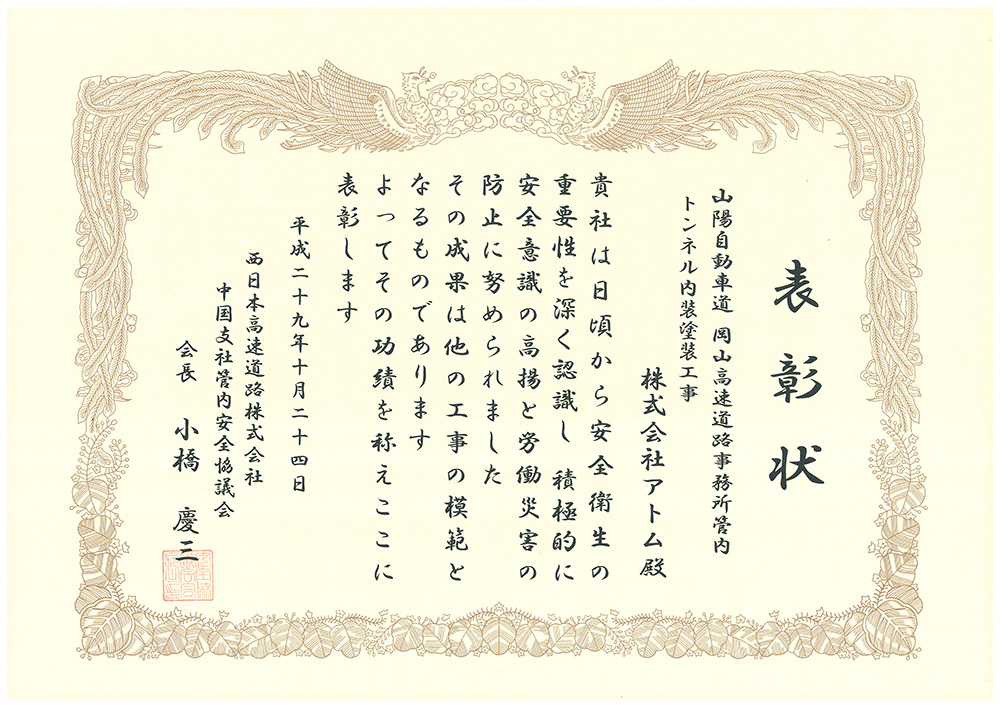 表彰状
山陽自動車道 岡山高速道路事務所管内
トンネル内装塗装工事
株式会社アトム殿
貴社は日頃から安全衛生の
重要性を深く認識し 積極的に
安全意識の高揚と労働災害の
防止に努められました
その成果は他の工事の模範と
なるものであります
よってその功績を称えここに
表彰します
平成二十九年十月二十四日
西日本高速道路株式会社
中国支社管内安全協議会
会長 小橋 慶三